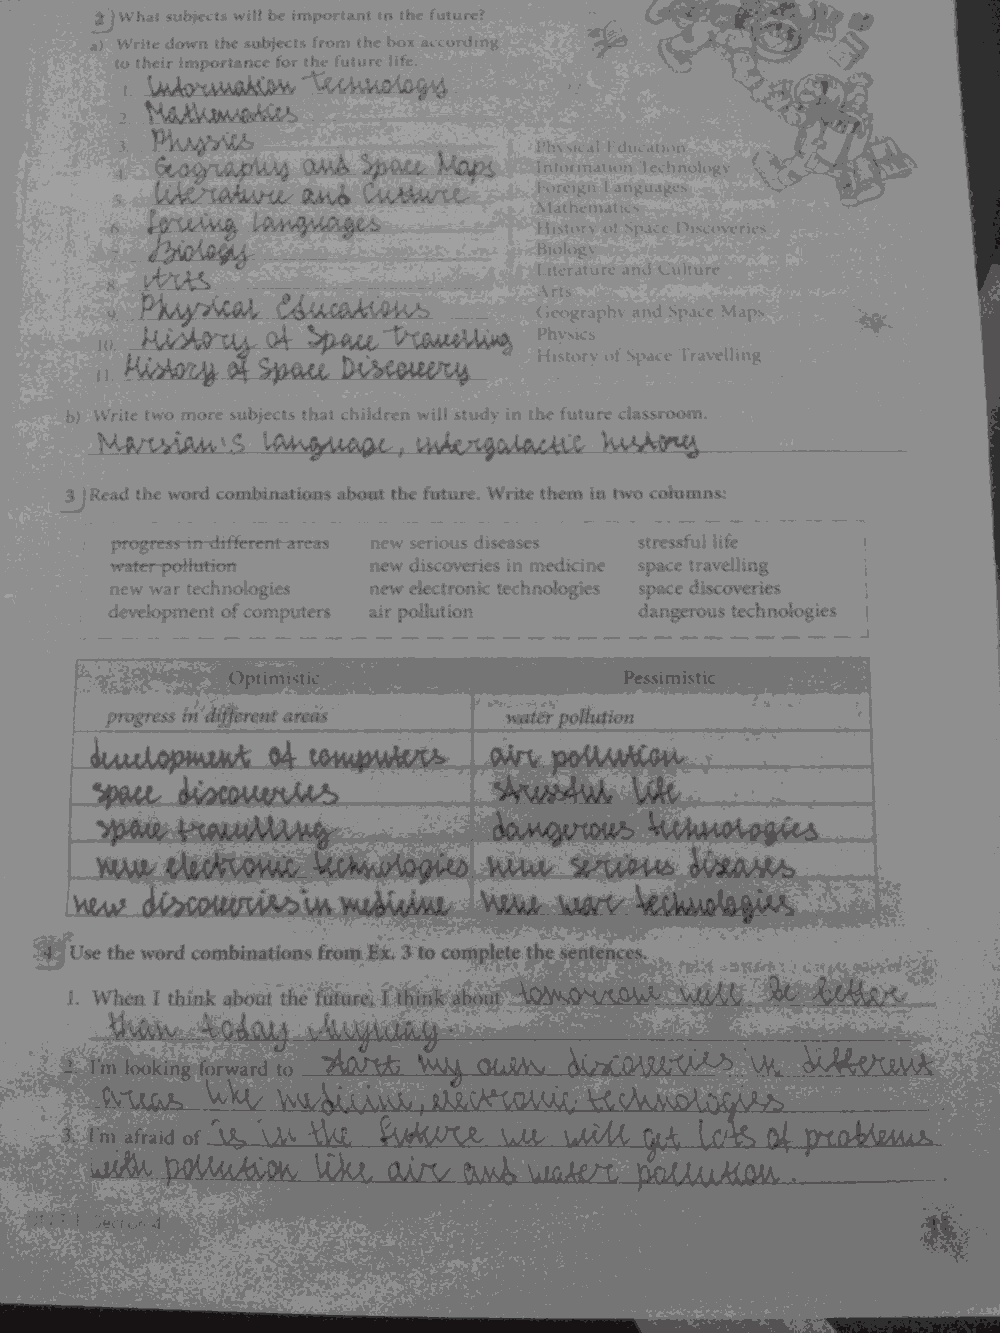 2 What subjects will be important in the future?
a) Write down the subjects from the box according
to their importance for the future life.
1. Information Technology
2. Mathematics
3. Physics
4. Geography and Space Maps
5. Literature and Culture
6. foreing languages
7. Biology
8. Arts
9. Physical Educations
10. History of Space Travelling
11. History of Space Discovery
Physical Education
Information Technology
Foreign Languages
Mathematics
History of Space Discoveries
Biology
Literature and Culture
Arts
Geography and Space Maps
Physics
History of Space Travelling
b) Write two more subjects that children will study in the future classroom.
Marsian's language, intergalactic history
3 Read the word combinations about the future. Write them in two columns:
progress in different areas new serious diseases stressful life
water pollution new discoveries in medicine space travelling
new war technologies new electronic technologies space discoveries
development of computers air pollution dangerous technologies
Optimistic Pessimistic
progress in different areas water pollution
development of computers air pollution
space discoveries stressful life
space travelling dangerous technologies
new electronic technologies new serious diseases
new discoveries in medicine new war technologies
4 Use the word combinations from Ex. 3 to complete the sentences.
1. When I think about the future, I think about tomorrow will be better
than today Anyway.
2. I'm looking forward to start my own discoveries in different
areas like medicine, electronic technologies
3. I'm afraid of is in the future we will get lots of problems
with pollution like air and water pollution.